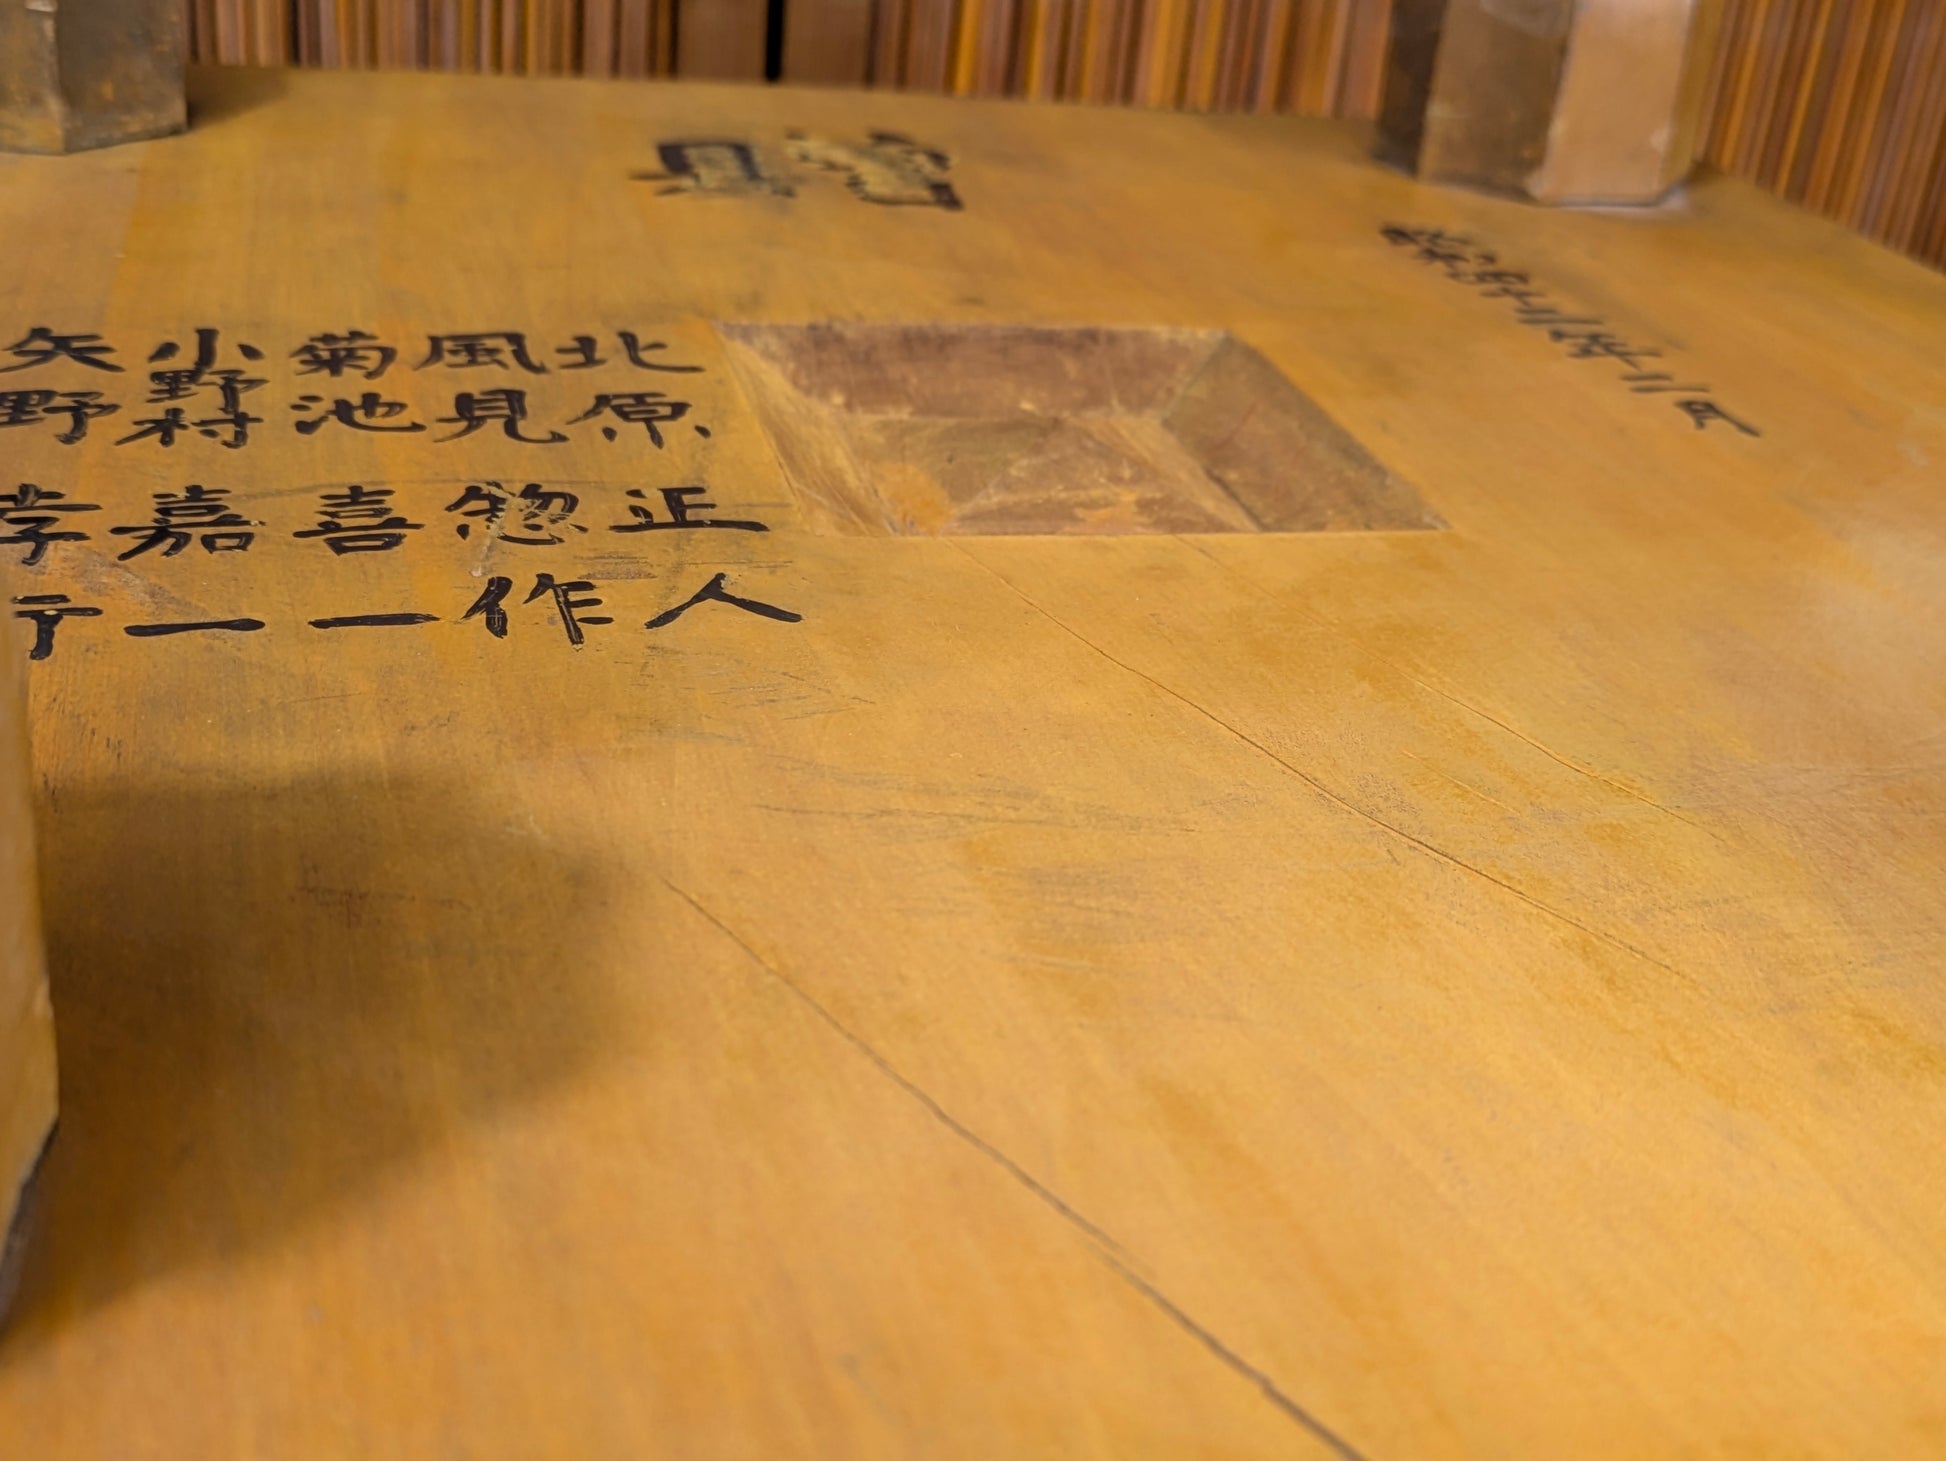 贈
北原正人
風見惣作
菊池喜一
小野村嘉一
矢野孝行